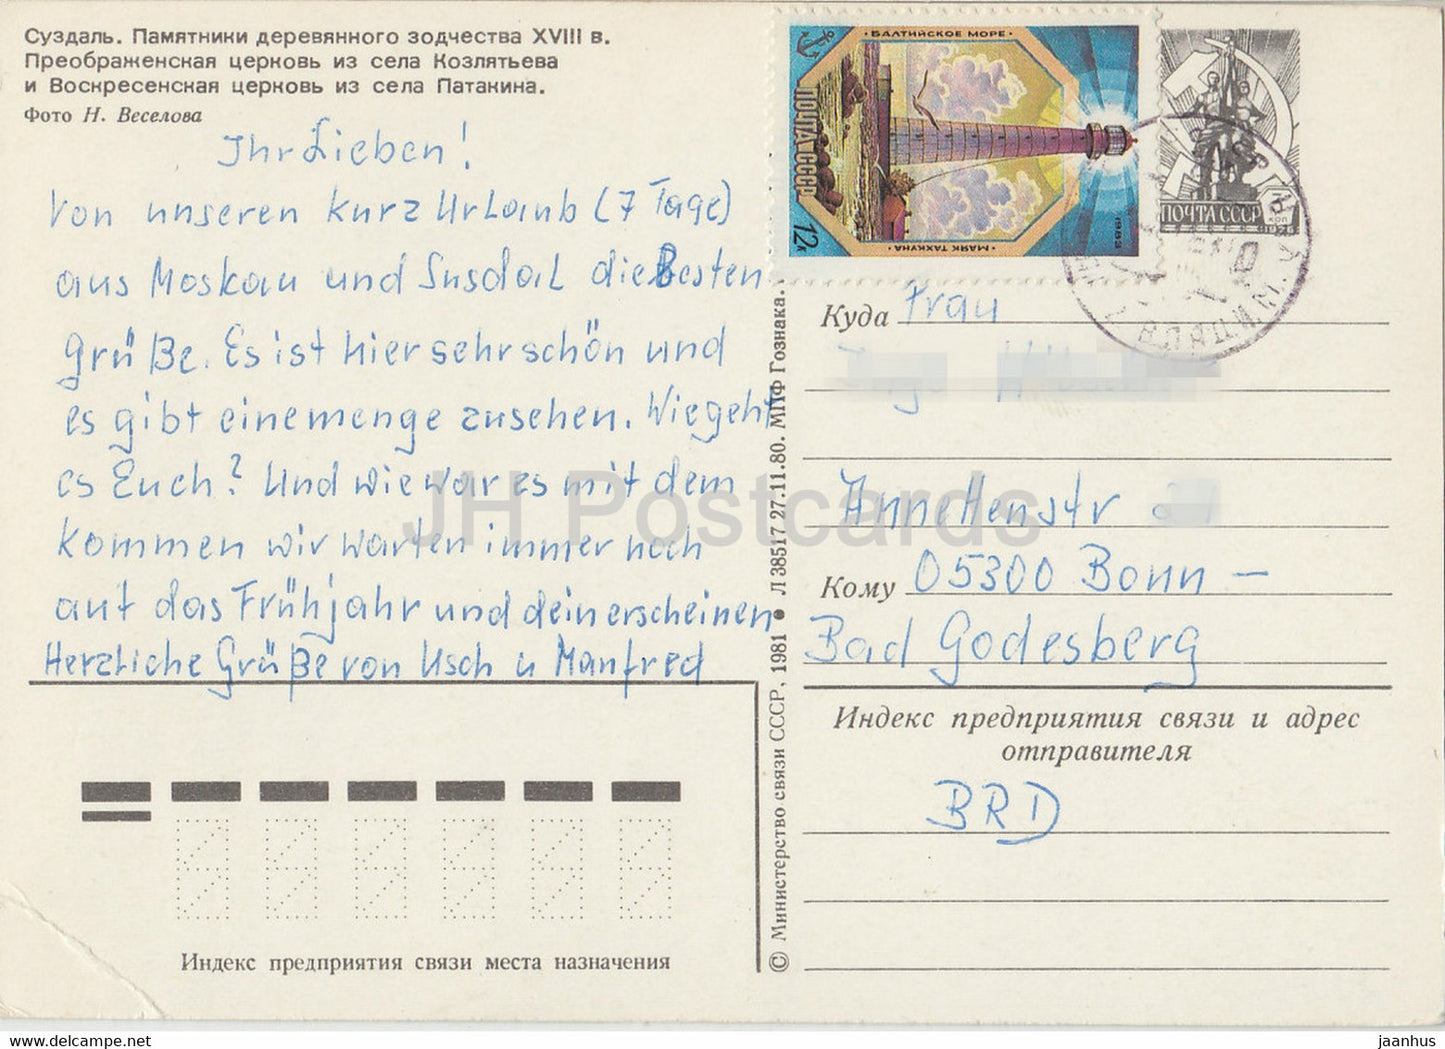 Суздаль. Памятники деревянного зодчества XVIII в.
Преображенская церковь из села Козлятьева
и Воскресенская церковь из села Патакина.
Фото Н. Веселова
Ihr Lieben!
Von unseren kurz Urlaub (7 Tage)
aus Moskau und Susdal die Besten
Grüße. Es ist hier sehr schön und
es gibt eine menge zusehen. Wie geht
es Euch? Und wie war es mit dem
kommen wir warten immer noch
auf das Frühjahr und dein erscheinen
Herzliche Grüße von Usch u Manfred
Индекс предприятия связи места назначения
© Министерство связи СССР, 1981 ● Л 38517 27.11.80. МПФ Гознака.
БАЛТИЙСКОЕ МОРЕ
ПОЧТА СССР
12к
МАЯК ТАХКУНА
1983
ПОЧТА СССР
коп
1976
Куда Frau
Annettenstr
Кому 05300 Bonn –
Bad Godesberg
Индекс предприятия связи и адрес
отправителя
BRD
JH Postcards
jaanhus